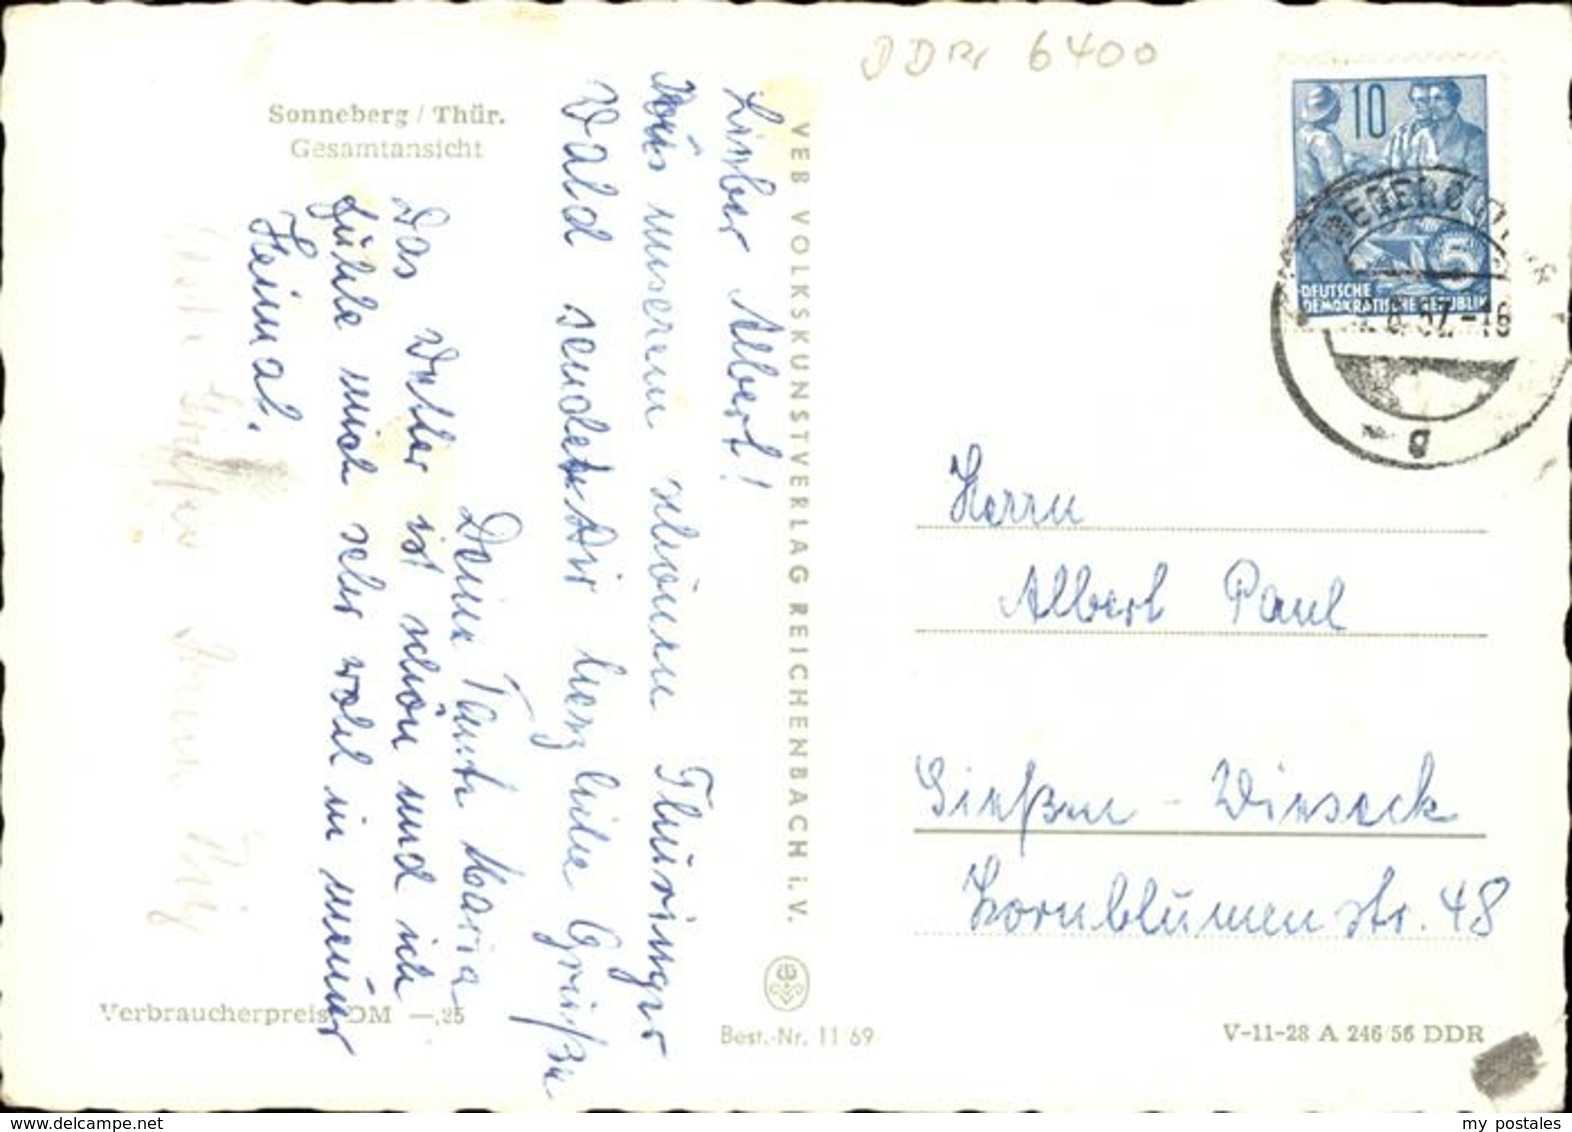 DDR 6400
Sonneberg / Thür.
Gesamtansicht
Lieber Albert!
Aus unserem schönen Thüringer
Wald sendet Dir herzliche Grüße
Deine Tante Maria
Das Wetter ist schön und ich
fühle mich sehr wohl in meiner
Heimat.
Verbraucherpreis DM —,25
VEB VOLKSKUNSTVERLAG REICHENBACH i. V.
Best.-Nr. 11 69
10
5
DEUTSCHE
DEMOKRATISCHE REPUBLIK
8.57.-16
g
Herrn
Albert Paul
Gießen - Wieseck
Kornblumenstr. 48
V-11-28 A 246/56 DDR
my_postales